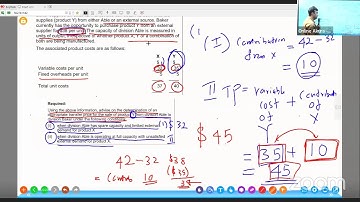 supplies (product Y) from either Able or an external source. Baker
currently has the opportunity to purchase product Y from an external
supplier for $38 per unit. The capacity of division Able is measured in
units of output, irrespective of whether product X, Y or a combination of
both are being manufactured.
The associated product costs are as follows:
X Y
Variable costs per unit 32 35
Fixed overheads per unit 5 5
Total unit costs 37 40
Required:
Using the above information, advise on the determination of an
appropriate transfer price for the sale of product Y from division Able to
division Baker under the following conditions:
(i) when division Able has spare capacity and limited external
demand for product X
(ii) when division Able is operating at full capacity with unsatisfied
external demand for product X.
(I) Contribution = 42 - 32
from X
= 10
II TP = Variable cost of Y + Contribution of X
= 35 + 10
= 45
$ 45
42 - 32
= Contri 10
$38
($35)
Online Class
zoom